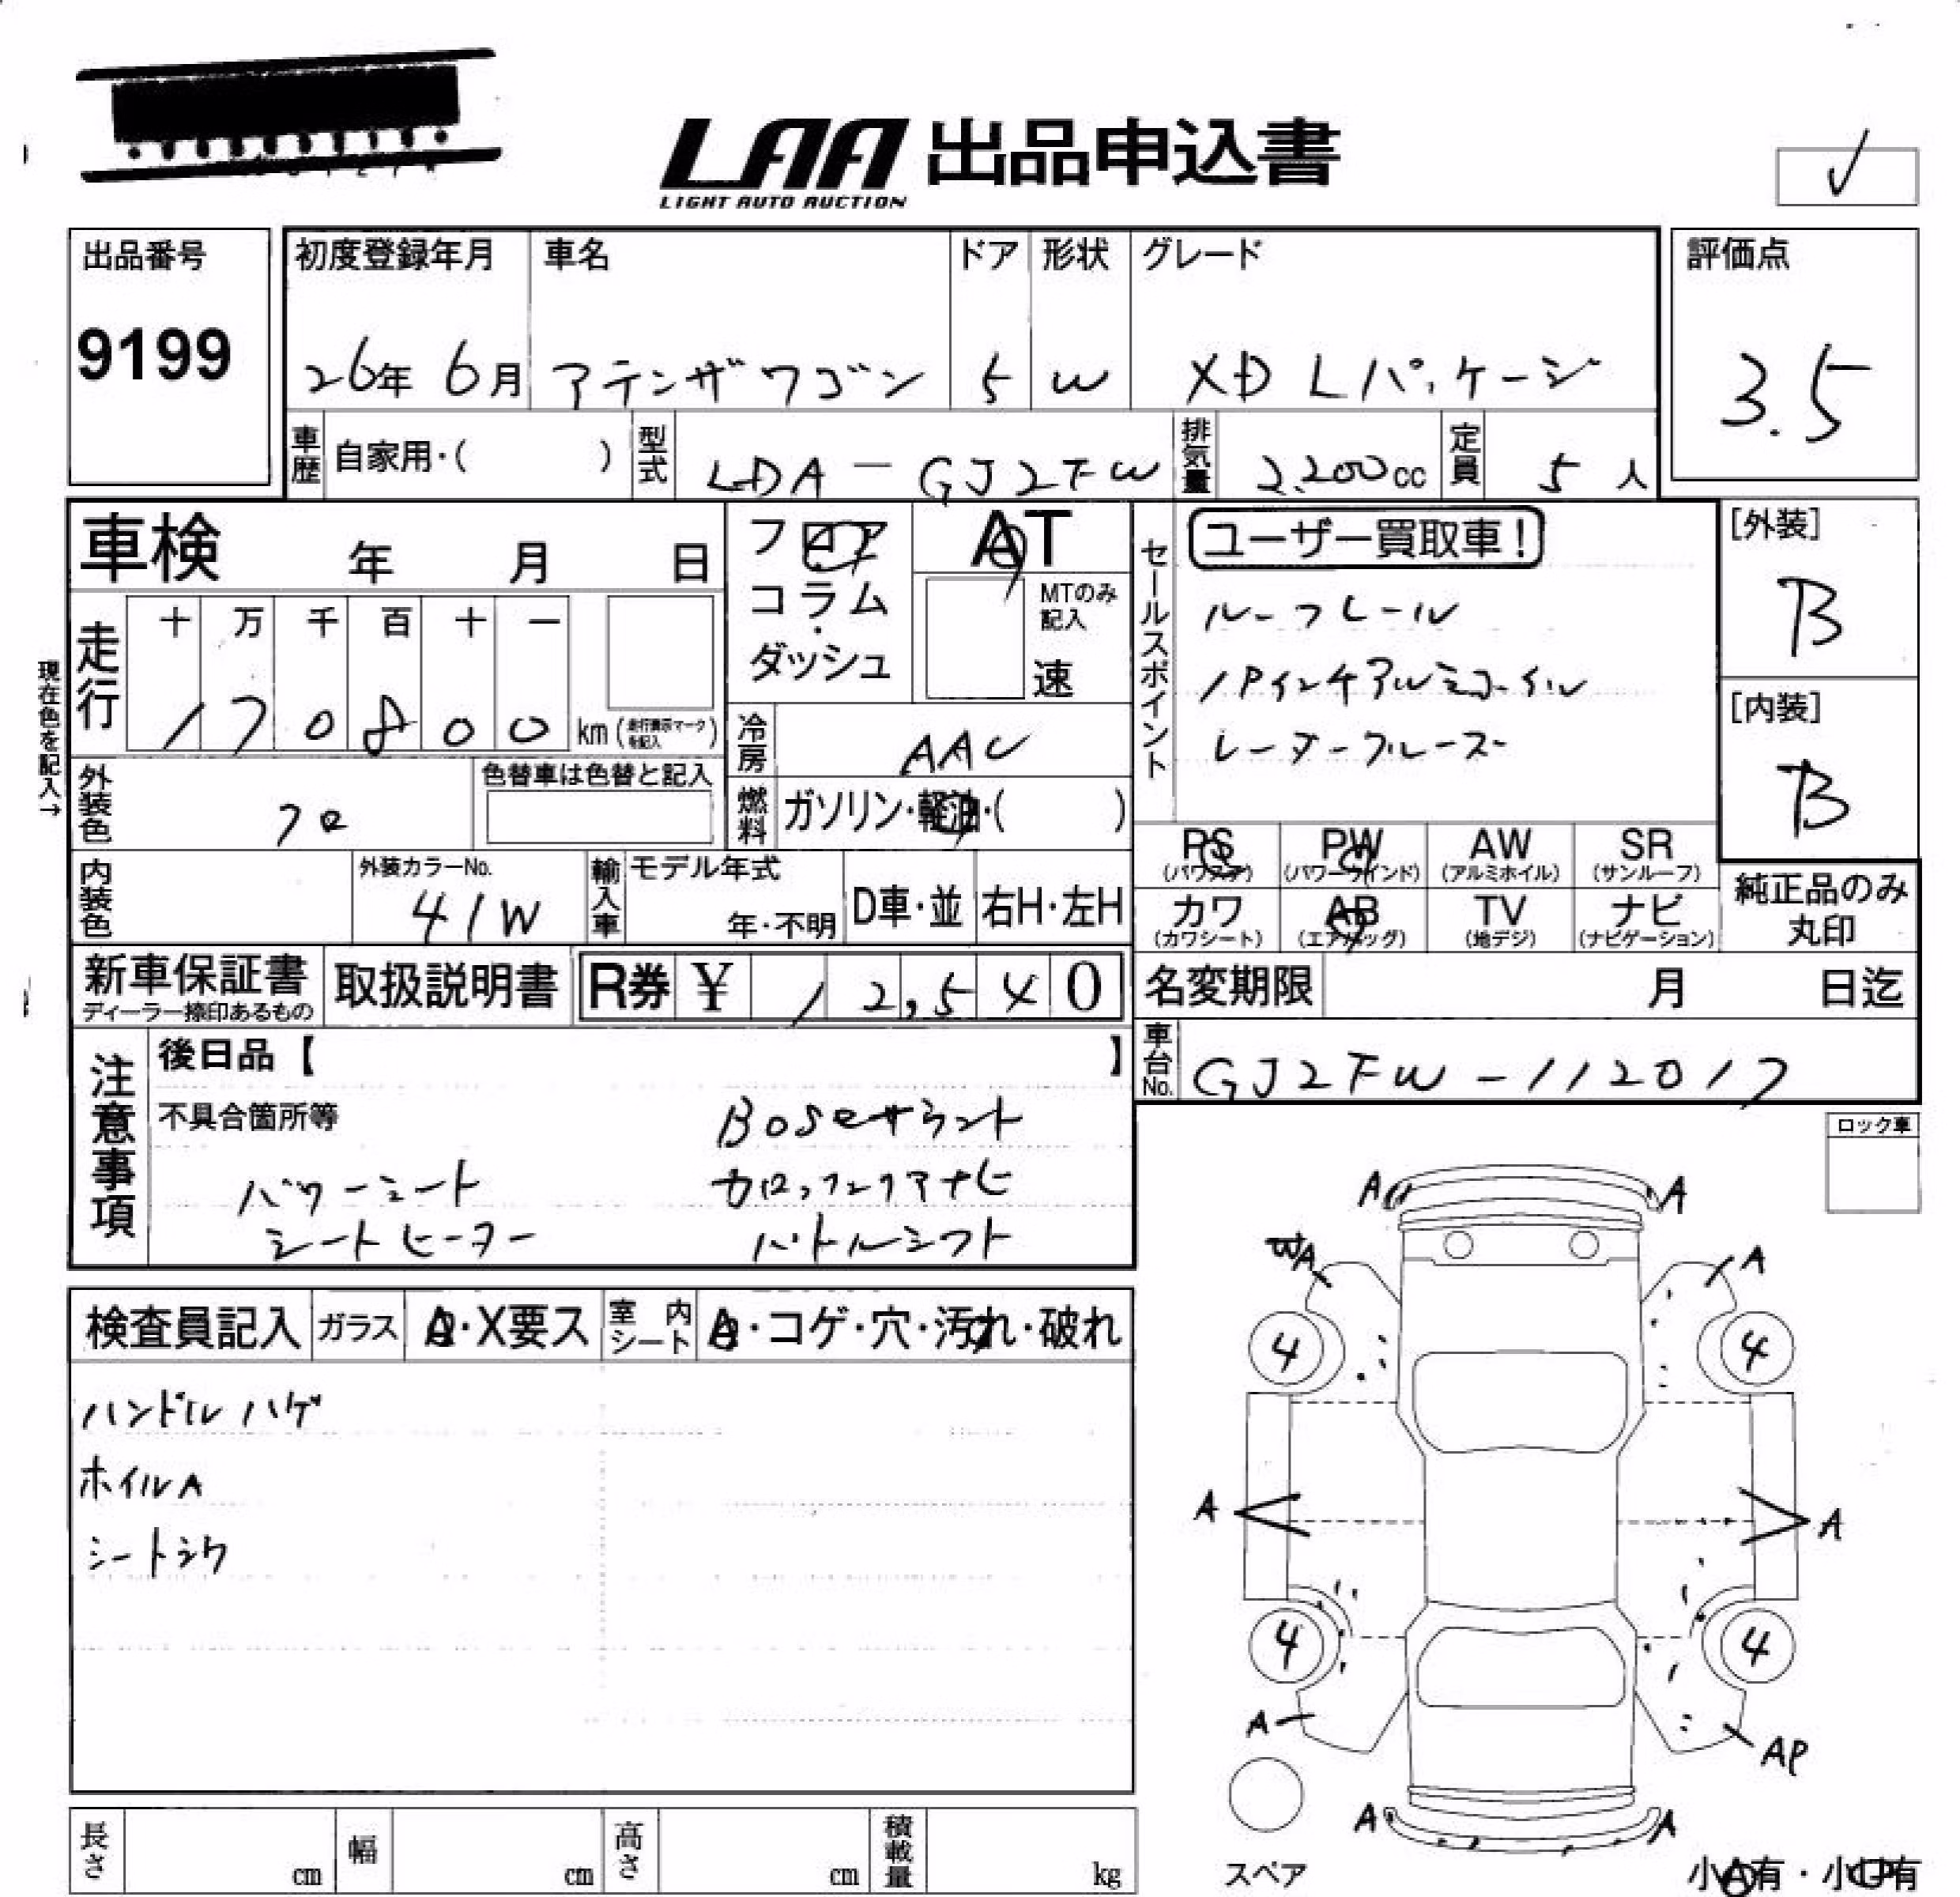 LAA 出品申込書
LIGHT AUTO AUCTION
✓
出品番号
9199
初度登録年月
26年 6月
車名
アテンザワゴン
ドア
5
形状
W
グレード
XD Lパッケージ
評価点
3.5
車歴 自家用・( )
型式 LDA-GJ2FW
排気量 2,200cc
定員 5人
車検 年 月 日
フロア・コラム・ダッシュ
AT
MTのみ記入
速
セールスポイント
ユーザー買取車!
ルーフレール
19インチアルミホイル
レーダークルーズ
[外装]
B
[内装]
B
現在色を記入→
走行 十 万 千 百 十 一
170800 km (走行表示マークを記入)
冷房 AAC
外装色 クロ
色替車は色替と記入
燃料 ガソリン・軽油・( )
内装色
外装カラーNo.
41W
輸入車 モデル年式
年・不明
D車・並
右H・左H
PS (パワステ)
PW (パワーウインド)
AW (アルミホイル)
SR (サンルーフ)
カワ (カワシート)
AB (エアバッグ)
TV (地デジ)
ナビ (ナビゲーション)
純正品のみ丸印
新車保証書
ディーラー捺印あるもの
取扱説明書
R券 ¥ 12,540
名変期限 月 日迄
車台No. GJ2FW-112017
注意事項
後日品【 】
不具合箇所等
BOSEサウンド
パワーシート
カロッツェリアナビ
シートヒーター
パドルシフト
ロック車
検査員記入
ガラス A・X要ス
室内シート A・コゲ・穴・汚れ・破れ
ハンドルハゲ
ホイルA
シートシワ
A A
WA A
4 4
A A
4 4
A AP
A A
スペア
小A有・小U有
長さ cm
幅 cm
高さ cm
積載量 kg